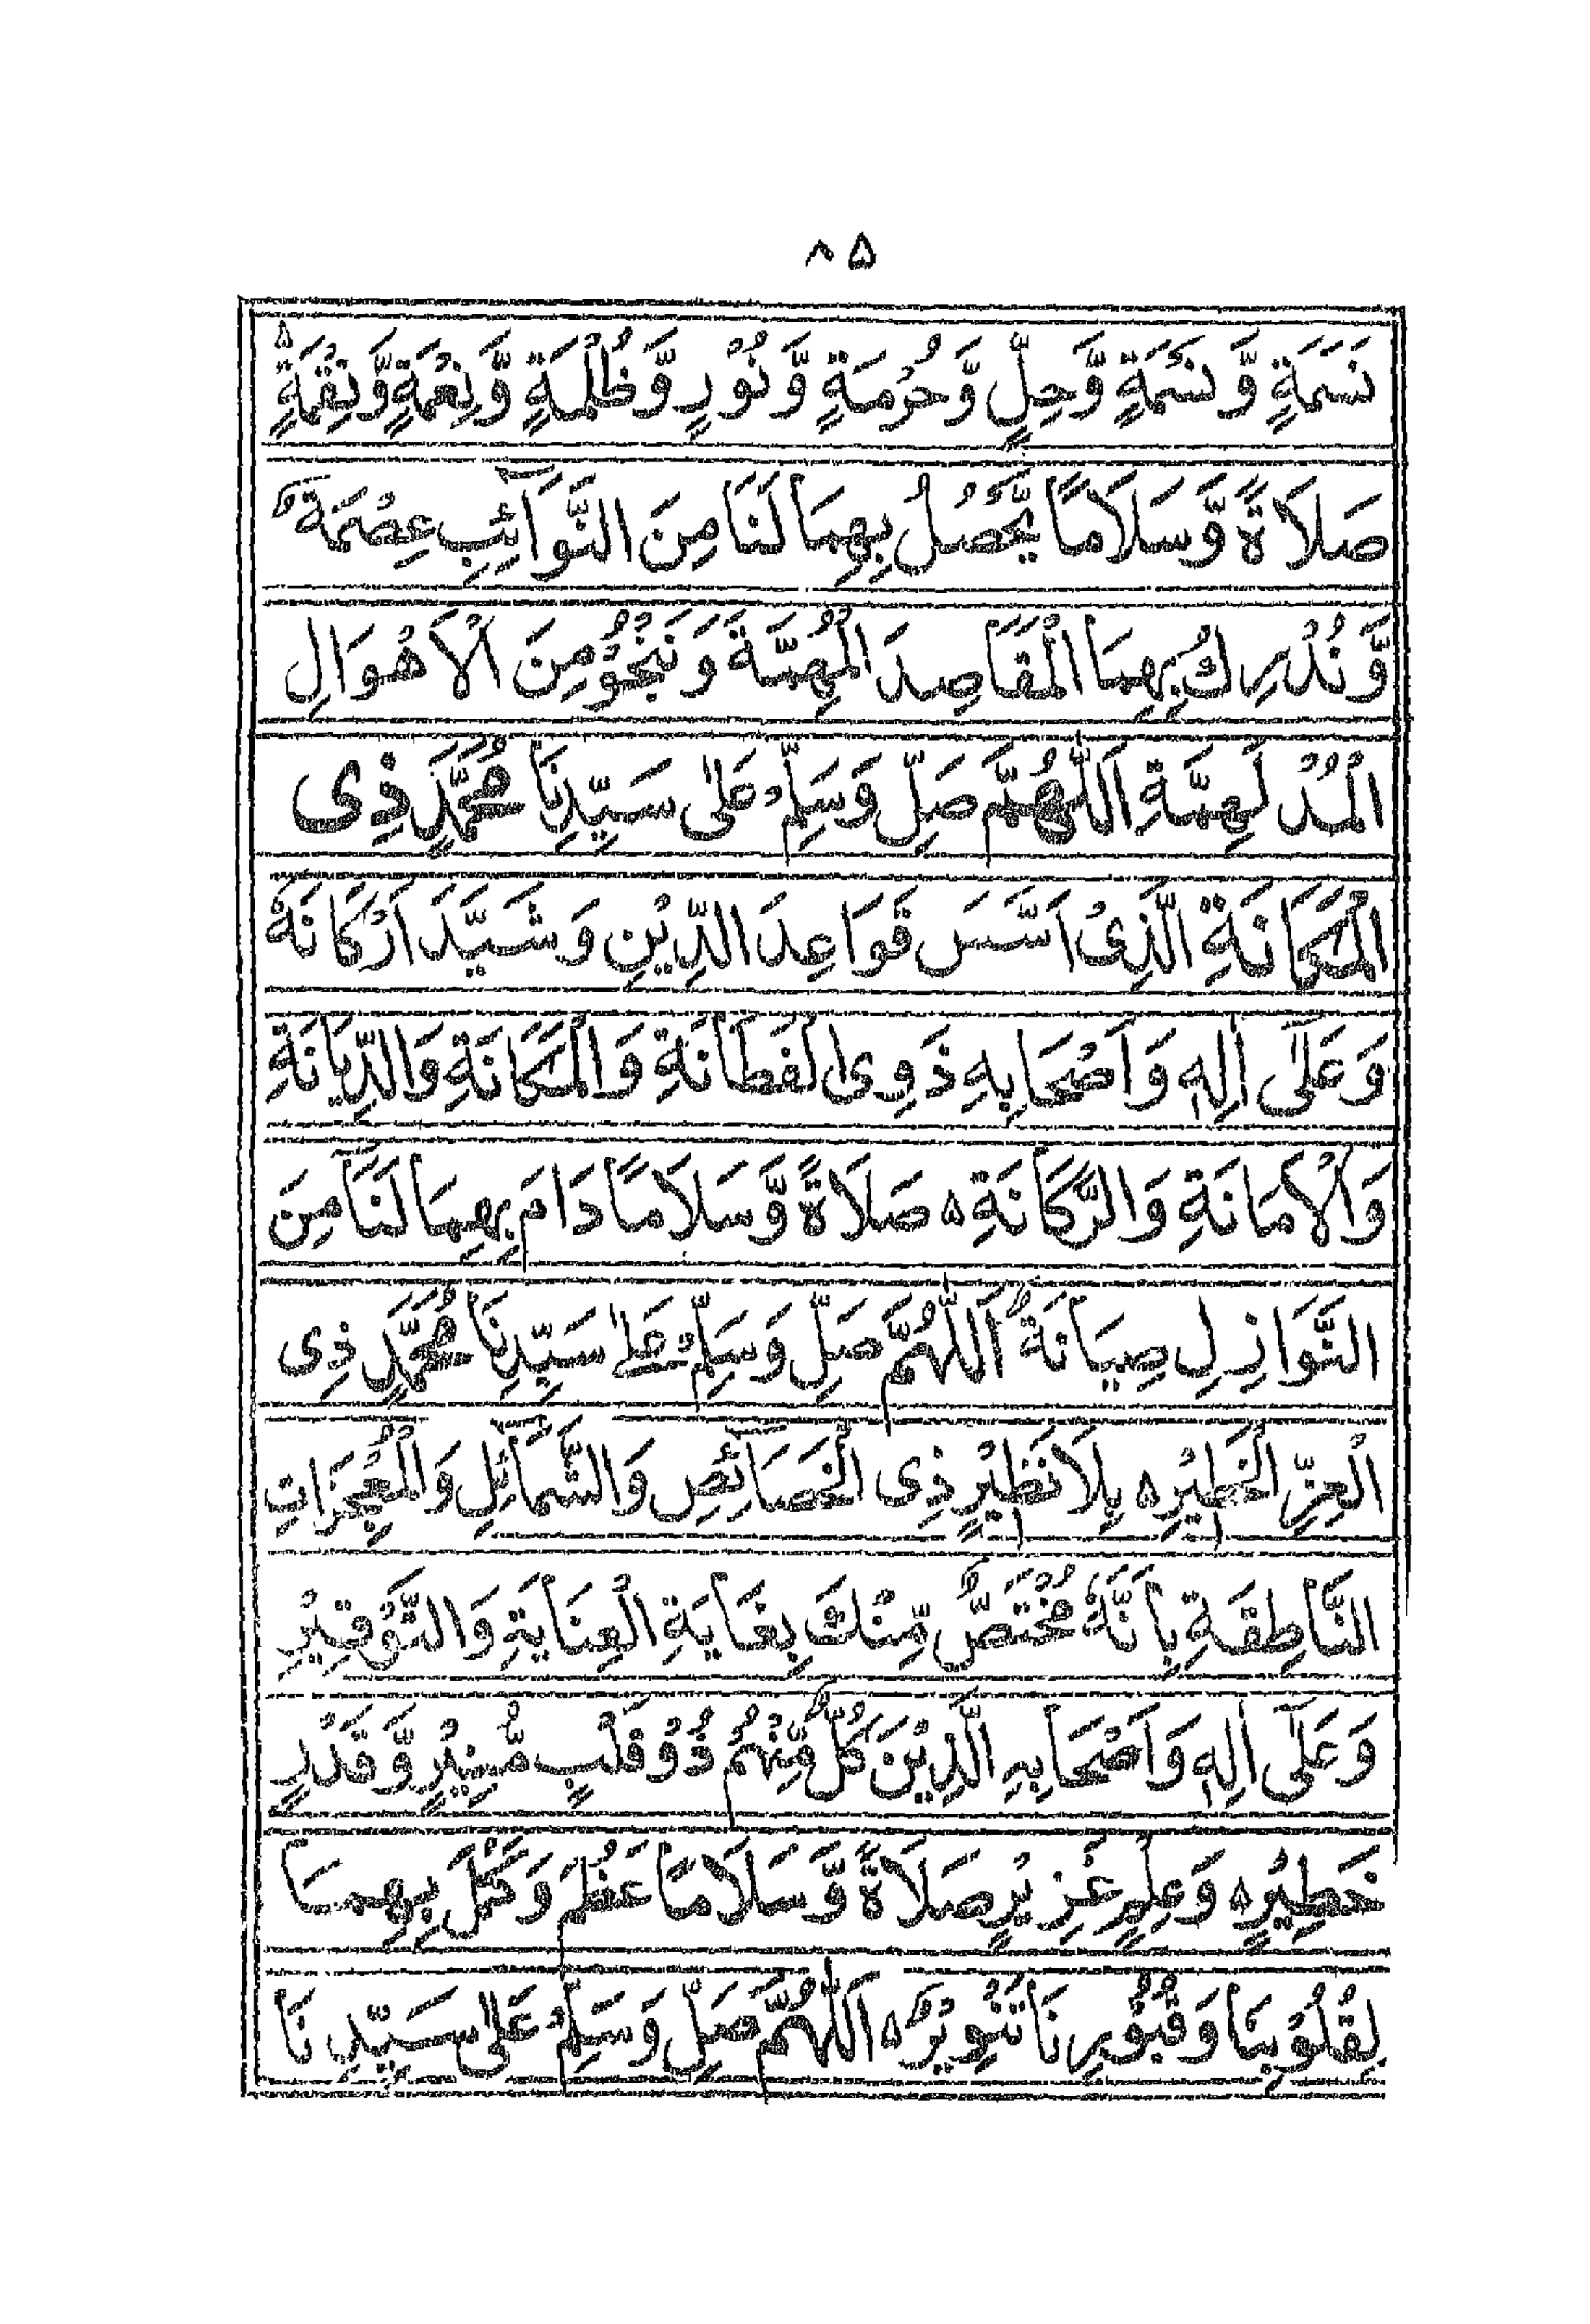 ٨٥
نَسَمَةٍ وَّنَسْمَةٍ وَّحِلٍّ وَّحُرْمَةٍ وَّنُوْرٍ وَّظُلْمَةٍ وَّنِعْمَةٍ وَّنِقْمَةٍ ه
صَلَاةً وَّسَلَامًا يَّحْصُلُ بِهِمَا لَنَا مِنَ النَّوَآئِبِ عِصْمَةٌ
وَّنُدْرِكُ بِهِمَا الْمَقَاصِدَ الْمُهِمَّةَ وَنَنْجُوْ مِنَ الْاَهْوَالِ
الْمُدْلَهِمَّةِ اَللّٰهُمَّ صَلِّ وَسَلِّمْ عَلٰى سَيِّدِنَا مُحَمَّدٍ ذِى
الْمَكَانَةِ الَّذِىْ اَسَّسَ قَوَاعِدَ الدِّيْنِ وَشَيَّدَ اَرْكَانَهٗ
وَعَلٰٓى اٰلِهٖ وَاَصْحَابِهٖ ذَوِى الْفَطَانَةِ وَالْمَكَانَةِ وَالدِّيَانَةِ
وَالْاَمَانَةِ وَالرَّكَانَةِ ه صَلَاةً وَّسَلَامًا دَامَ بِهِمَا لَنَا مِنَ
النَّوَازِلِ صِيَانَةٌ اَللّٰهُمَّ صَلِّ وَسَلِّمْ عَلٰى سَيِّدِنَا مُحَمَّدٍ ذِى
الْعِزِّ الْخَطِيْرِ ه بِلَا نَظِيْرٍ ذِى الْخَصَآئِصِ وَالشَّمَآئِلِ وَالْمُعْجِزَاتِ
النَّاطِقَةِ بِاَنَّهٗ مُخْتَصٌّ مِّنْكَ بِغَايَةِ الْعِنَايَةِ وَالتَّوْقِيْرِ
وَعَلٰٓى اٰلِهٖ وَاَصْحَابِهِ الَّذِيْنَ كُلٌّ مِّنْهُمْ ذُوْ قَلْبٍ مُّنِيْرٍ وَّقَدْرٍ
خَطِيْرٍ ه وَعِلْمٍ غَزِيْرٍ صَلَاةً وَّسَلَامًا عَظُمَ وَكَمُلَ بِهِمَا
لِقُلُوْبِنَا وَقُبُوْرِنَا تَنْوِيْرٌ ه اَللّٰهُمَّ صَلِّ وَسَلِّمْ عَلٰى سَيِّدِنَا